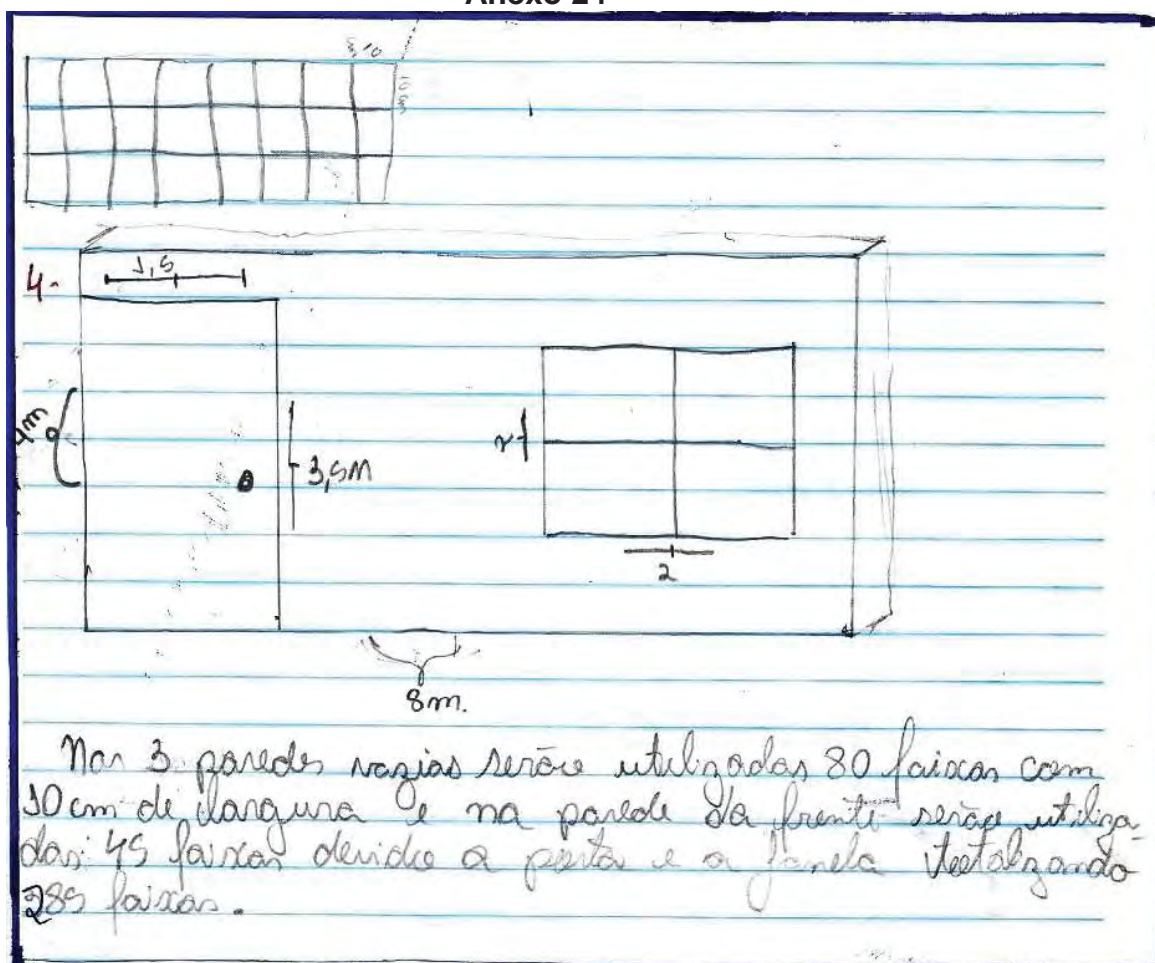 Anexo 24
10
10cm
4-
1,5
4m
3,5m
2
2
8m.
Nas 3 paredes vazias serão utilizadas 80 faixas com
10cm de largura e na parede da frente serão utiliza-
das 45 faixas devido a porta e a janela totalizando
285 faixas.